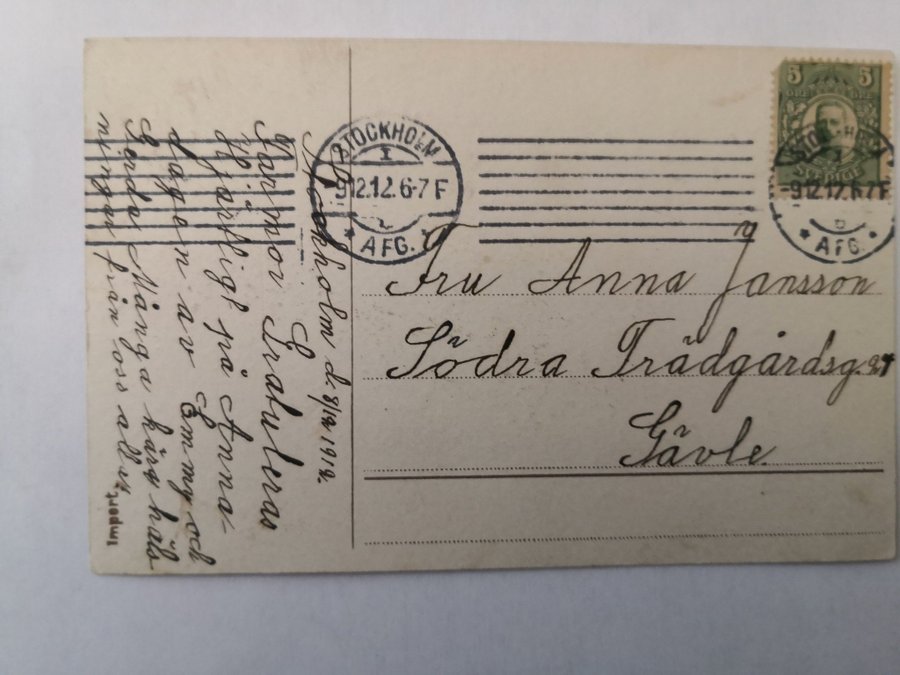 Stockholm d. 8/12 1912.
Farmor Gratuleras
Hjärtligt på Anna-
dagen av Emmy och
Gerda Många kära häls
ningar från oss alla.
Import.
STOCKHOLM
1
9.12.12.6-7 F
* AFG. *
5 5
SVERIGE
STOCKHOLM
1
9.12.12.6-7 F
* AFG. *
Fru Anna Jansson
Södra Trädgårdsg.
Gävle.